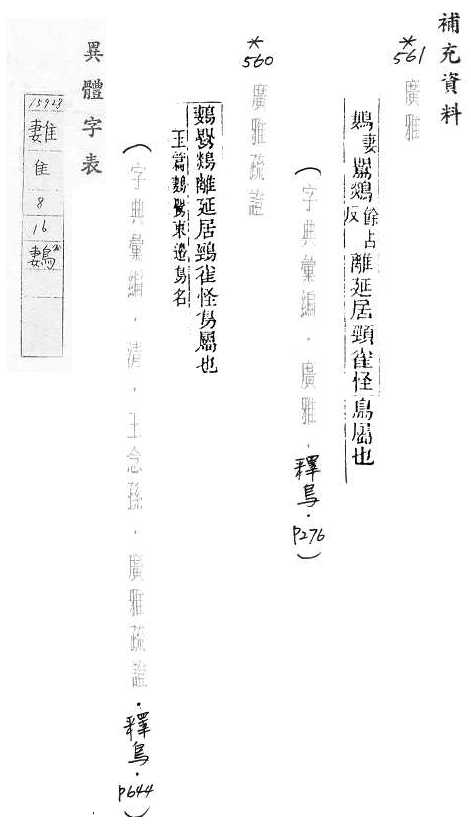 補充資料
*561
廣雅
鶈妻鸓鵕餘占反離延居頸雀怪鳥屬也
(字典彙編．廣雅．釋鳥．P276)
*560
廣雅疏證
離延居鵛雀怪鳥屬也
玉篇鶈鸒東邊鳥名
(字典彙編．清．王念孫．廣雅疏證．釋鳥．P644)
異體字表
15928
隹
8
16
鶈